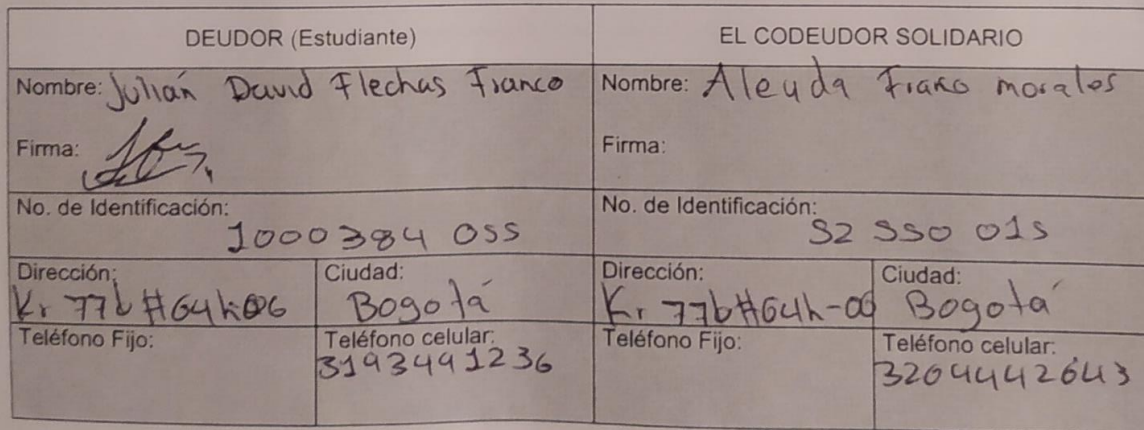 DEUDOR (Estudiante)
EL CODEUDOR SOLIDARIO
Nombre: Julián David Flechas Franco
Nombre: Aleyda Franco morales
Firma:
Firma:
No. de Identificación:
1000384 055
No. de Identificación:
52 550 015
Dirección:
Kr 77b #64h-06
Ciudad:
Bogotá
Dirección:
Kr 77b#64h-06
Ciudad:
Bogotá
Teléfono Fijo:
Teléfono celular:
3193491236
Teléfono Fijo:
Teléfono celular:
3204442643